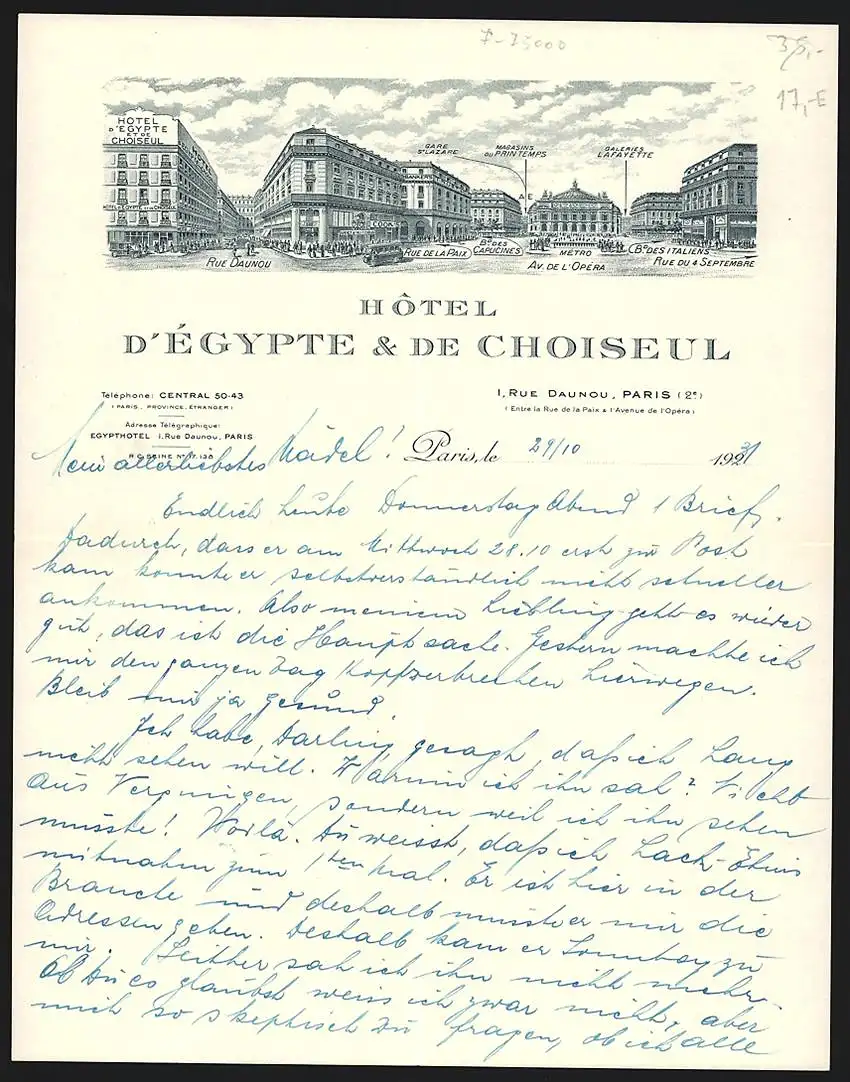 7-75000
35,-
17,-E
HOTEL
D'EGYPTE
ET DE
CHOISEUL
GARE
ST LAZARE
MAGASINS
DU PRINTEMPS
GALERIES
LAFAYETTE
BANKERS
COOK
RUE DAUNOU
RUE DE LA PAIX
BD DES
CAPUCINES
METRO
AV. DE L'OPÉRA
BD DES ITALIENS
RUE DU 4 SEPTEMBRE
HÔTEL
D'ÉGYPTE & DE CHOISEUL
Téléphone: CENTRAL 50-43
(PARIS, PROVINCE, ÉTRANGER)
Adresse Télégraphique:
EGYPTHOTEL 1, Rue Daunou, PARIS
R.C. SEINE No 17.138
1, RUE DAUNOU, PARIS (2e)
(Entre la Rue de la Paix & l'Avenue de l'Opéra)
Paris, le 29/10 1931
Mein allerliebstes Mädel!
Endlich heute Donnerstag Abend 1 Brief.
Dadurch, dass er am Mittwoch 28.10 erst zur Post
kam konnte er selbstverständlich nicht schneller
ankommen. Also meinem Liebling geht es wieder
gut, das ist die Hauptsache. Gestern machte ich
mir den ganzen Tag Kopfzerbrechen hierwegen.
Bleib mir ja gesund.
Ich habe, Darling gesagt, daß ich Lang
nicht sehen will. Warum ich ihn sah? Nicht
aus Vergnügen, sondern weil ich ihn sehen
musste! Voilà. Du weisst, daß ich Lack-Etuis
mitnahm zum 1ten Mal. Er ist hier in der
Branche und deshalb musste er mir die
Adressen geben. Deshalb kam er Sonntag zu
mir. Seither sah ich ihn nicht mehr.
Ob Du es glaubst weiss ich zwar nicht, aber
mich so skeptisch zu fragen, ob ich alle